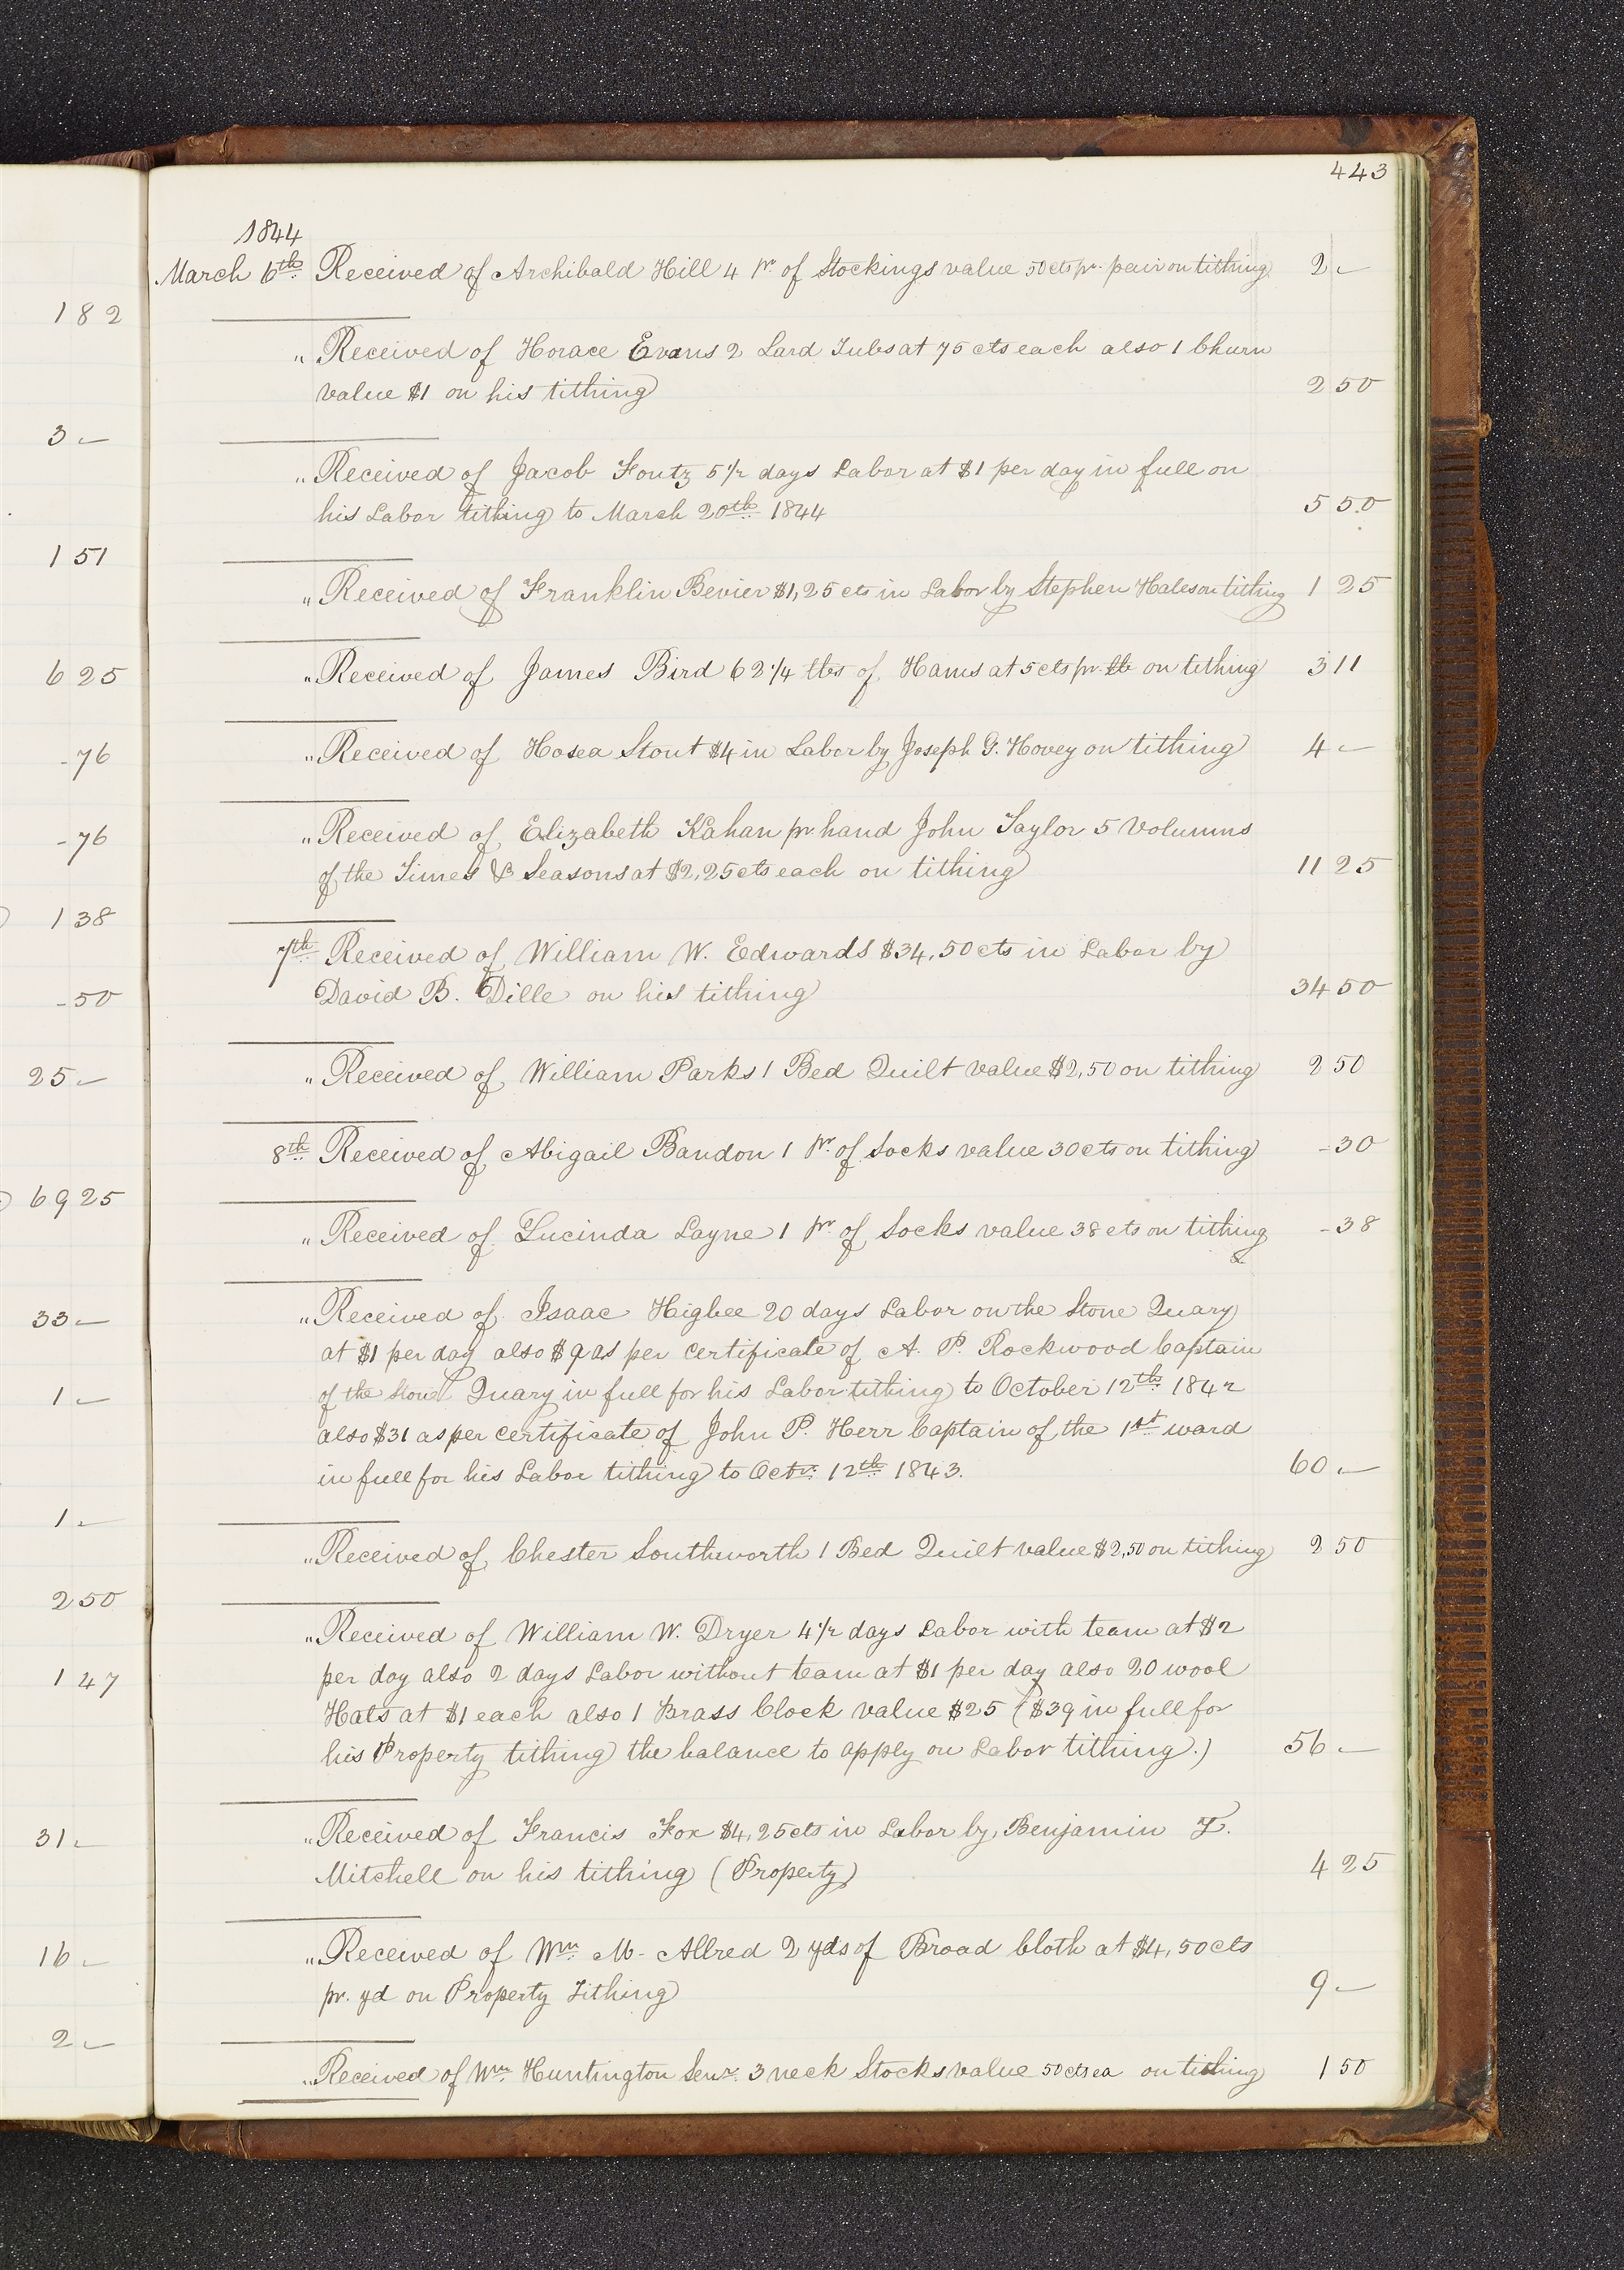 443
1844
March 6th Received of Archibald Hill 4 pr. of Stockings value 50 cts pr. pair on tithing 2 -
" Received of Horace Evans 2 Lard Tubs at 75 cts each also 1 Churn
value $1 on his tithing 2 50
" Received of Jacob Foutz 5 1/2 days Labor at $1 per day in full on
his Labor tithing to March 20th 1844 5 50
" Received of Franklin Bevier $1,25 cts in Labor by Stephen Hales on tithing 1 25
" Received of James Bird 62 1/4 lbs of Hams at 5 cts pr. lb on tithing 3 11
" Received of Hosea Stout $4 in Labor by Joseph G. Hovey on tithing 4 -
" Received of Elizabeth Kahan pr. hand John Taylor 5 Volumns
of the Times & Seasons at $2,25 cts each on tithing 11 25
7th Received of William W. Edwards $34,50 cts in Labor by
David B. Dille on his tithing 34 50
" Received of William Parks 1 Bed Quilt value $2,50 on tithing 2 50
8th Received of Abigail Bandon 1 pr. of Socks value 30 cts on tithing - 30
" Received of Lucinda Layne 1 pr. of Socks value 38 cts on tithing - 38
" Received of Isaac Higbee 20 days Labor on the Stone Quary
at $1 per day also $9 as per certificate of A. P. Rockwood Captain
of the Stone Quary in full for his Labor tithing to October 12th 1842
also $31 as per certificate of John P. Herr Captain of the 1st ward
in full for his Labor tithing to Octr. 12th 1843. 60 -
" Received of Chester Southworth 1 Bed Quilt value $2,50 on tithing 2 50
" Received of William W. Dryer 4 1/2 days Labor with team at $2
per day also 2 days Labor without team at $1 per day also 20 wool
Hats at $1 each also 1 Brass Clock value $25 ($39 in full for
his Property tithing the balance to apply on Labor tithing.) 56 -
" Received of Francis Fox $4,25 cts in Labor by Benjamin T.
Mitchell on his tithing (Property) 4 25
" Received of Wm. M. Allred 2 yds of Broad Cloth at $4,50 cts
pr. yd on Property Tithing 9 -
" Received of Wm. Huntington Senr. 3 neck Stocks value 50 cts ea on tithing 1 50
1 82
3 -
1 51
6 25
- 76
- 76
1 38
- 50
25 -
69 25
33 -
1 -
1 -
2 50
1 47
31 -
16 -
2 -